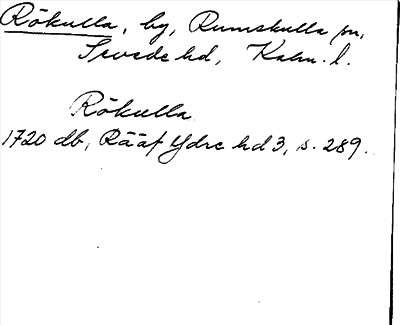 Rökulla, by, Rumskulla sn,
Sevede hd, Kalm. l.
Rökulla
1720 db, Rääf Ydre hd 3, s. 289.